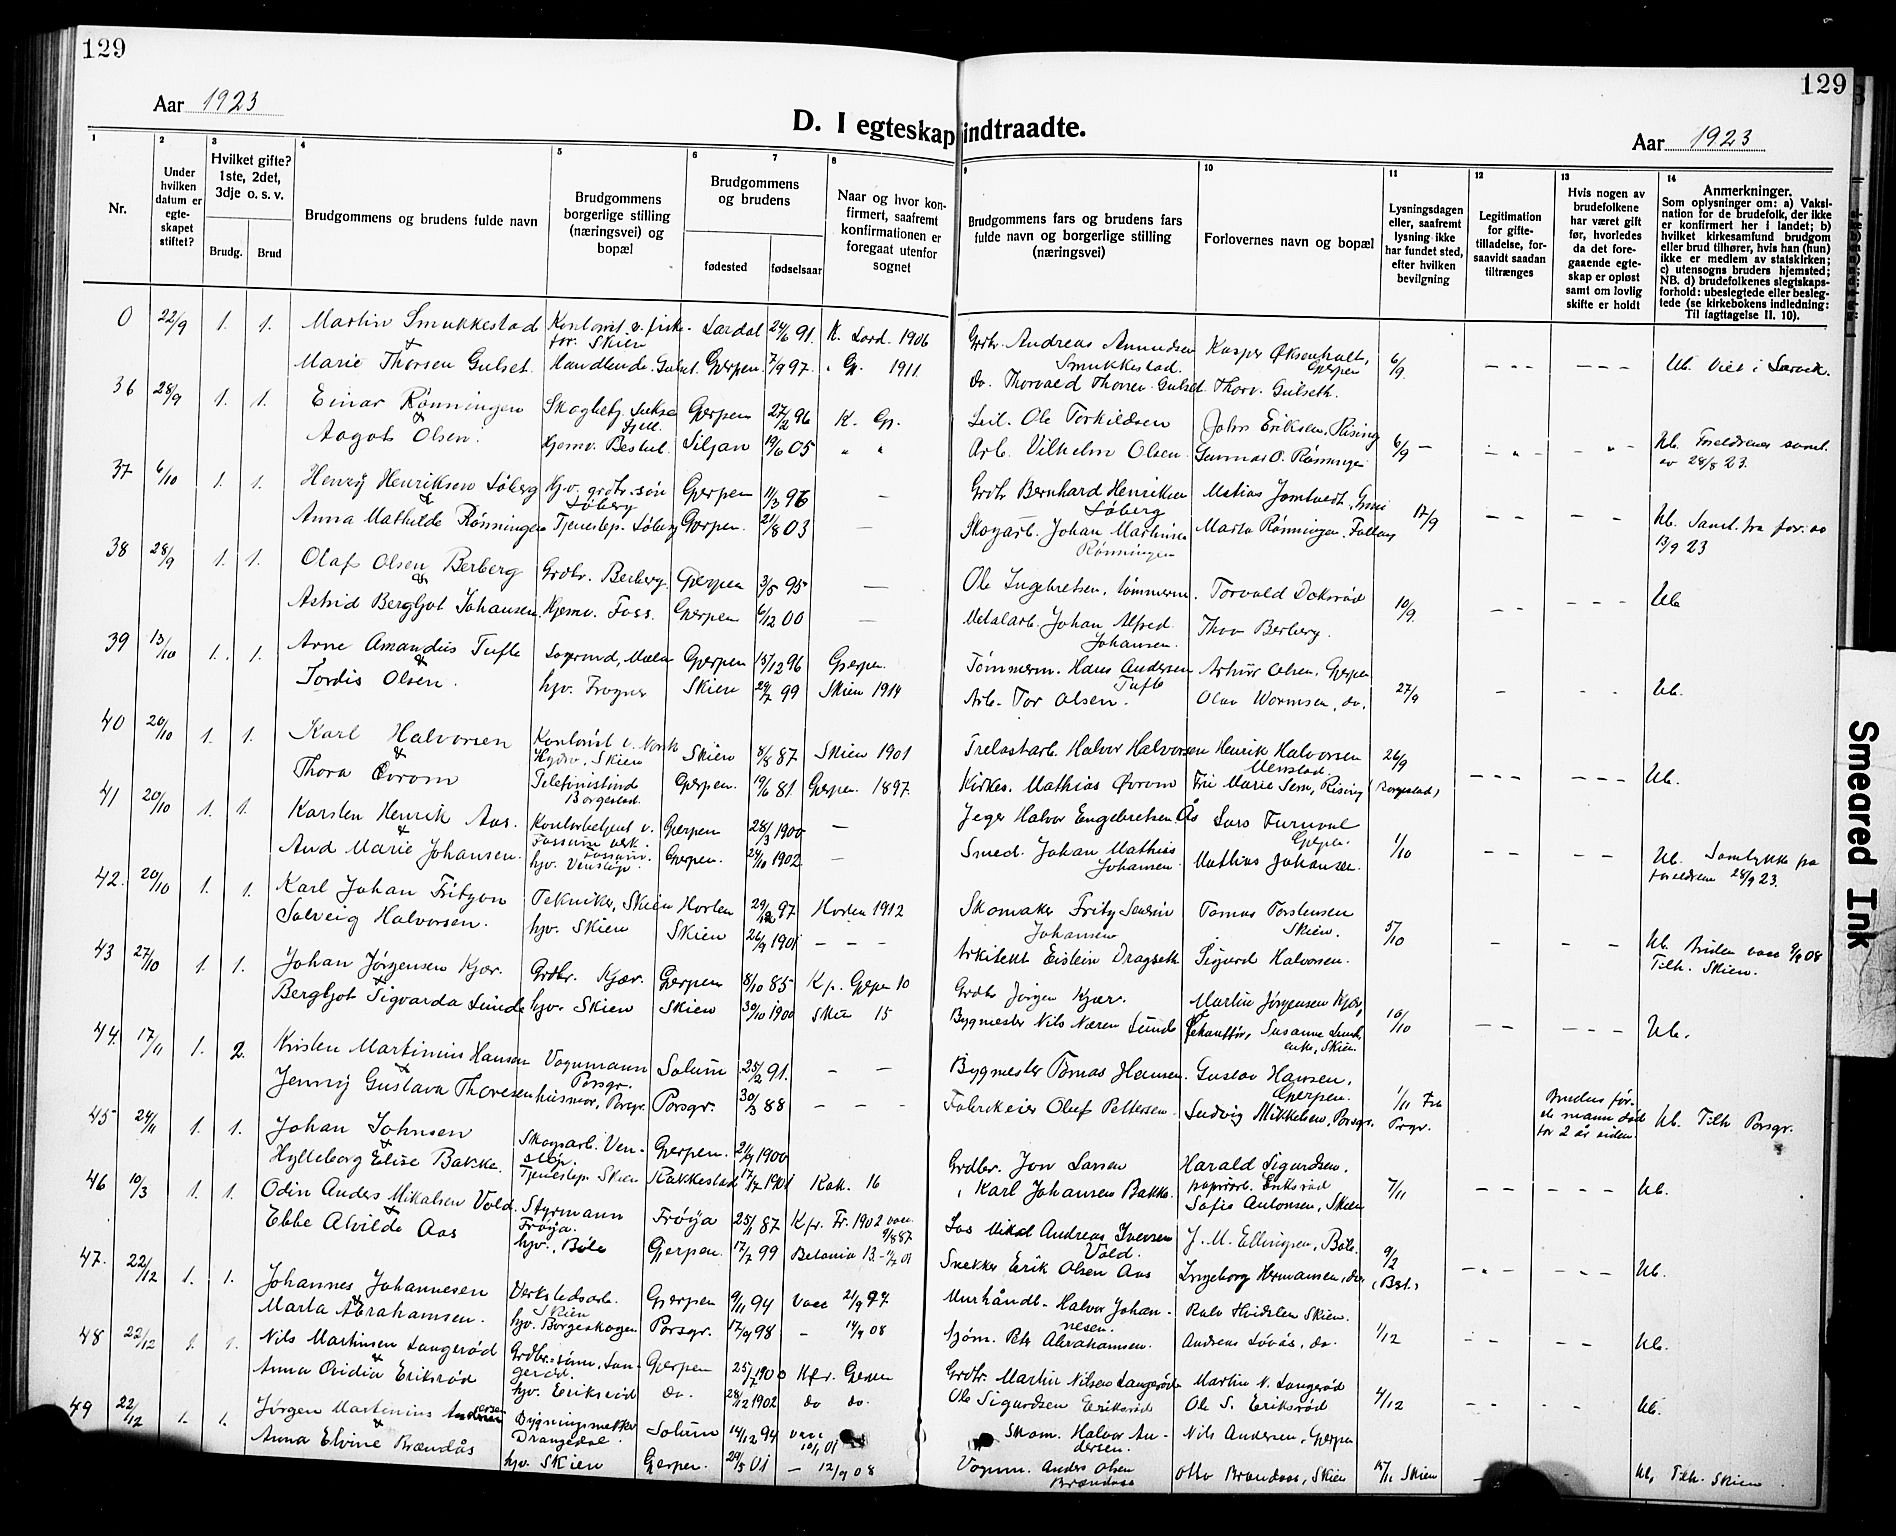 129
129
Aar 1923
D. I egteskap indtraadte.
Aar 1923
1
2
Under hvilken datum er egte-skapet stiftet?
3
Hvilket gifte? 1ste, 2det, 3dje o. s. v.
4
5
6
7
8
9
10
11
12
13
14
Nr.
Brudg.
Brud
Brudgommens og brudens fulde navn
Brudgommens borgerlige stilling (næringsvei) og bopæl
Brudgommens og brudens
fødested
fødselsaar
Naar og hvor kon-firmert, saafremt konfirmationen er foregaat utenfor sognet
Brudgommens fars og brudens fars fulde navn og borgerlige stilling (næringsvei)
Forlovernes navn og bopæl
Lysningsdagen eller, saafremt lysning ikke har fundet sted, efter hvilken bevilgning
Legitimation for gifte-tilladelse, for-saavidt saadan tiltrænges
Hvis nogen av brudefolkene har været gift før, hvorledes da det fore-gaaende egte-skap er opløst samt om lovlig skifte er holdt
Anmerkninger.
Som oplysninger om: a) Vaksi-nation for de brudefolk, der ikke er konfirmert her i landet; b) hvilket kirkesamfund brudgom eller brud tilhører, hvis han (hun) ikke er medlem av statskirken; c) utensogns bruders hjemsted; NB. d) brudefolkenes slegtskaps-forhold: ubeslegtede eller besleg-tede (se kirkebokens indledning: Til iagttagelse II. 10).
0 22/9 1. 1. Martin Smukkestad Skien Lardal 24/6 91. K. Lard. 1906 Grdbr. Andreas Amundsen Smukkestad. Kasper Øksenholt, Gjerpen 6/9. - - - - - - Ub. Viet i Larvik.
& Marie Thorsen Gulset. Handlende. Gulset. Gjerpen. 7/9 97. " Gj. 1911. do. Thorvald Thorsen Gulset Thorv. Gulseth.
36 28/9 1. 1. Einar Rønningen Gjerpen 27/2 96 K. Gj. Ole Torkildsen John Eriksen, Rising 6/9 - - " - - " - Ub. Foreldrenes samt. av 28/8 23.
& Aagot Olsen. Hjemv. Bestul. Siljan 19/6 05 " " Arb. Vilhelm Olsen Gunnar O. Rønningen
37 6/10 1. 1. Henry Henriksen Løberg Hjv. grdbr. søn Løberg Gjerpen 11/3 96 - Grdbr Bernhard Henriksen Løberg Mathias Jomtvedt, 17/9 - - - - Ub. Samt. fra for. av 13/9 23
& Anna Mathilde Rønningen Tjenestep. Løberg Gjerpen. 21/8 03 - Skogarb. Johan Martinsen Rønningen Marta Rønningen.
38 28/9 1. 1. Olaf Olsen Berberg Grdbr. Berberg. Gjerpen 3/5 95 - Ole Ingebretsen, tømmerm. Torvald Doksrød 10/9. - - - - - Ub
& Astrid Bergljot Johansen. Hjemv. Foss. Gjerpen 6/12 00 - Metalarb. Johan Alfred Johansen. Thov Berberg.
39 13/10 1. 1. Arne Amandus Tufte Gjerpen 13/12 96 Gjerpen. Tømmerm. Hans Andersen Tufte Arthur Olsen, Gjerpen 27/9 - - - Ub.
& Tordis Olsen. hjv. Frogner Skien 29/7 99 Skien 1914 Arb. Tor Olsen. Olav Wormsen, do.
40 20/10 1. 1. Karl Halvorsen Kontorist v. Norsk Hydro, Skien Skien 8/8 87 Skien 1901 Trelastarb. Halvor Halvorsen Henrik Halvorsen Menstad. 26/9 - - - - - - Ub.
& Thora Øvrom Telefonistinde Borgestad. Gjerpen. 19/6 81. Gjerpen. 1897. Kirkes. Mathias Øvrom Fru Marie Sem, Rising (Borgestad)
41 20/10 1. 1. Karsten Henrik Aas. Kontorbetjent v. Fossum verk. Fossum. Gjerpen 28/3 1900 - Jeger Halvor Engebretsen Ås Lars Furuvol Gjerpen. 1/10 Ub. Samtykke fra foreldrene 28/9 23.
& Aud Marie Johansen. hjv. Venstøp. Gjerpen. 24/10 1902. - Smed. Johan Mathias Johansen Mathias Johansen.
42. 20/10 1. 1. Karl Johan Fritzon Tekniker, Skien Horten 29/12 97 Horten 1912 Skomaker Fritz Severin Johansen Tomas Torstensen Skien. 5/10 - - - Ub. Bruden vacc 9/9 08 Tilh. Skien.
Solveig Halvorsen. hjv. Skien Skien 26/9 1901 - - - Arkitekt Eistein Dragseth Sigurd Halvorsen.
43 27/10 1. 1. Johan Jørgensen Kjær. Grdbr. Kjær. Gjerpen 8/10 85 Kf. Gjerpen 10 Grdbr Jørgen Kjær. Martin Jørgensen Kjær, 10/10 - - - - - Ub.
& Bergljot Sigvarda Lunde hjv. Skien Skien 30/10 1900 Skien 15 Bygmester Nils Næren Lunde Susanne Lunde enke, Skien.
44. 17/11 1. 2. Kristen Martinius Hansen Vognmann Porsgr. Solum 25/2 91. - - Bygmester Tomas Hansen. Gustav Hansen, Gjerpen. 1/11 Fra Porgr. Brudens før-ste mann død for 2 år siden. Ub. Tilh. Porsgr.
& Jenny Gustava Thoresen husmor, Porsgr. Porsgr. 30/3 88 - - - Fabrikeier Oluf Pettersen. Ludvig Mikkelsen, Porsgr.
45 24/11 1. 1. Johan Johnsen Skogsarb. Ven-støp. Gjerpen. 21/9 1900 Grdbr. Jon Larsen Harald Sigurdsen, papirarb. Eriksrød 7/11 - - - - - Ub.
& Hylleborg Elise Bakke. Tjenestep. Skien Rakkestad 17/7 1901 Rak. 16 " Karl Johansen Bakke. Sofie Antonsen, Skien
46 10/3 1. 1. Odin Anders Mikalsen Vold. Styrmann Frøya. Frøya 25/1 87 Kf. Fr. 1902 vacc. 9/8 87 Los Mikal Andreas Iversen Vold. J. M. Ellingsen, Bøle. 9/2 (Bet.) - " - - - - Ub.
& Ebbe Alvilde Aas hjv., Bøle Gjerpen. 17/7 99 Betania 13. Snekker Erik Olsen Aas Ingeborg Hermansen, do.
47. 22/12 1. 1. Johannes Johannesen Verkstedsarb. Skien Gjerpen 9/11 94 Vacc 21/9 97 Murhåndl. Halvor Johan-nesen. Skien. 1/12 - - - - Ub.
& Marta Abrahamsen. hjv. Borgeskogen Porsgr. 17/9 98 - 14/9 08 Sjøm. Petr Abrahamsen. Andreas Løvås, do.
48 22/12 1. 1. Nils Martinsen Langerød Grdbr.sønn, Lan-gerød. Gjerpen 25/7 1900 Kfr. Gjerpen Grdbr. Martin Nilsen Langerød Martin N. Langerød 4/12 - - - - Ub.
& Anna Ovidia Eriksrød hjv. Eriksrød do. 28/12 1902 do do. Ole Sigurdsen Eriksrød Ole S. Eriksrød
49 22/12 1. 1. Jørgen Martinius Andersen Bygningssnekker Drangedal. Solum 14/12 94 vacc 10/1 01 Skom. Halvor An-dersen. Nils Andersen, Gjerpen 15/11 Skien Ub, Tilh. Skien.
& Anna Elvine Brændås hjv. Skien Gjerpen. 29/5 01 - 12/9 08 Vognm. Anders Olsen Brændaas Otto Brændaas, Skien
Smeared Ink